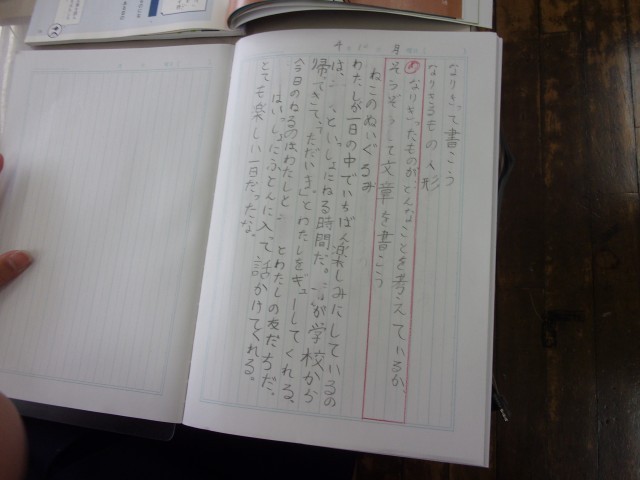 なりきって書こう
なりきるもの 人形
め なりきったものが、どんなことを考えているか、
そうぞうして文章を書こう
ねこのぬいぐるみ
わたしが一日の中でいちばん楽しみにしているの
は、 といっしょにねる時間だ。 が学校から
帰てきて、「ただいま。」とわたしをギューしてくれる。
今日のねるのはわたしと とわたしの友だちだ。
いっしょにふとんに入て話かけてくれる。
とても楽しい一日だったな。